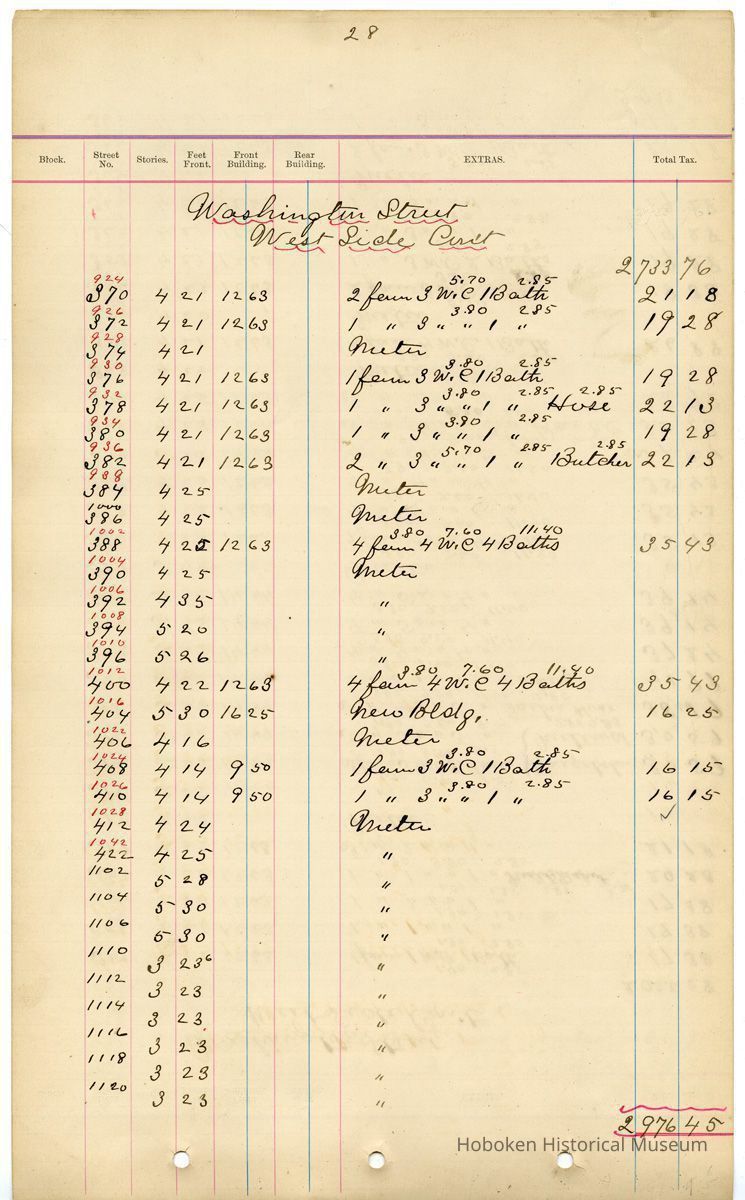 28
Block. Street No. Stories. Feet Front. Front Building. Rear Building. EXTRAS. Total Tax.
Washington Street
West Side Cont
2733 76
924 5.70 2.85
370 4 21 12 63 2 fam 3 W.C 1 Bath 21 18
926 3.80 2.85
372 4 21 12 63 1 " 3 " " 1 " 19 28
928
374 4 21 Meter
930 3.80 2.85
376 4 21 12 63 1 fam 3 W.C 1 Bath 19 28
932 3.80 2.85 2.85
378 4 21 12 63 1 " 3 " " 1 " Hose 22 13
934 3.80 2.85
380 4 21 12 63 1 " 3 " " 1 " 19 28
936 5.70 2.85 2.85
382 4 21 12 63 2 " 3 " " 1 " Butcher 22 13
938
384 4 25 Meter
1000
386 4 25 Meter
1002 3.80 7.60 11.40
388 4 25 12 63 4 fam 4 W.C 4 Baths 35 43
1004
390 4 25 Meter
1006
392 4 35 "
1008
394 5 20 "
1010
396 5 26 "
1012 3.80 7.60 11.40
400 4 22 12 63 4 fam 4 W.C 4 Baths 35 43
1016
404 5 30 16 25 New Bldg. 16 25
1022
406 4 16 Meter
1024 3.80 2.85
408 4 14 9 50 1 fam 3 W.C 1 Bath 16 15
1026 3.80 2.85
410 4 14 9 50 1 " 3 " " 1 " 16 15
1028
412 4 24 Meter ✓
1042
422 4 25 "
1102
5 28 "
1104
5 30 "
1106
5 30 "
1110
3 23⁶ "
1112
3 23 "
1114
3 23 "
1116
3 23 "
1118
3 23 "
1120
3 23 "
2976 45
Hoboken Historical Museum